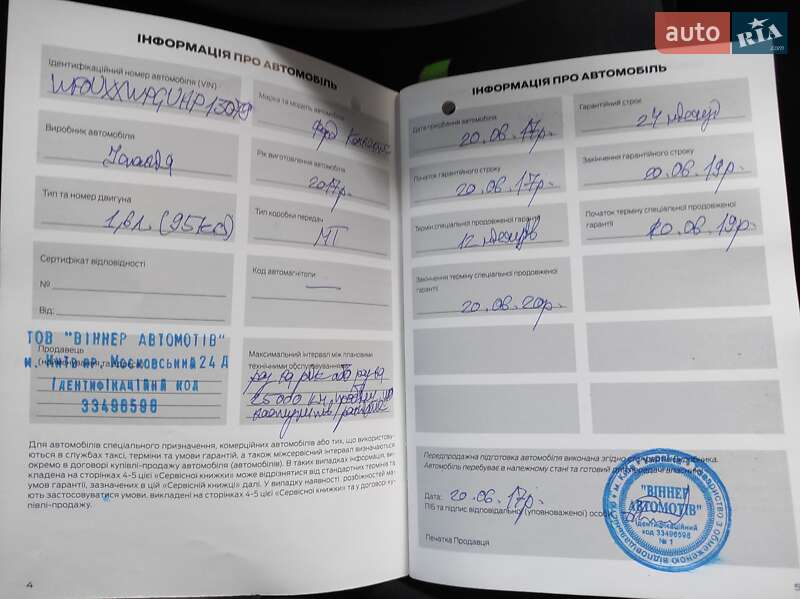 auto RIA .com
ІНФОРМАЦІЯ ПРО АВТОМОБІЛЬ
Ідентифікаційний номер автомобіля (VIN)
Марка та модель автомобіля
Форд
Виробник автомобіля
Рік виготовлення автомобіля
2017р.
Тип та номер двигуна
(95кс)
Тип коробки передач
МТ
Сертифікат відповідності
№
Від:
Код автомагнітоли
—
ТОВ "ВІННЕР АВТОМОТІВ"
Продавець
м. Київ пр. Московський 24 Д
ІДЕНТИФІКАЦІЙНИЙ КОД
33496598
Максимальний інтервал між плановими
технічними обслуговуваннями
раз на рік або раз на
Для автомобілів спеціального призначення, комерційних автомобілів або тих, що використову-
ються в службах таксі, терміни та умови гарантій, а також міжсервісний інтервал визначається
окремо в договорі купівлі-продажу автомобіля (автомобілів). В таких випадках інформація, ви-
кладена на сторінках 4-5 цієї «Сервісної книжки» може відрізнятися від стандартних термінів та
умов гарантії, зазначених в цій «Сервісній книжці» далі. У випадку наявності розбіжностей ма-
ють застосовуватися умови, викладені на сторінках 4-5 цієї «Сервісної книжки» та у договорі ку-
півлі-продажу.
4
ІНФОРМАЦІЯ ПРО АВТОМОБІЛЬ
Дата придбання автомобіля
20.06.17р.
Гарантійний строк
24
Початок гарантійного строку
20.06.17р.
Закінчення гарантійного строку
20.06.19р.
Термін спеціальної продовженої гарантії
12
Початок терміну спеціальної продовженої
гарантії
20.06.19р.
Закінчення терміну спеціальної продовженої
гарантії
20.06.20р.
Передпродажна підготовка автомобіля виконана згідно
Автомобіль перебуває в належному стані та готовий до передачі власнику.
Дата: 20.06.17р.
ПІБ та підпис відповідальної (уповноваженої) особи
Печатка Продавця
"ВІННЕР
АВТОМОТІВ"
Ідентифікаційний
код 33496598
№ 1
5